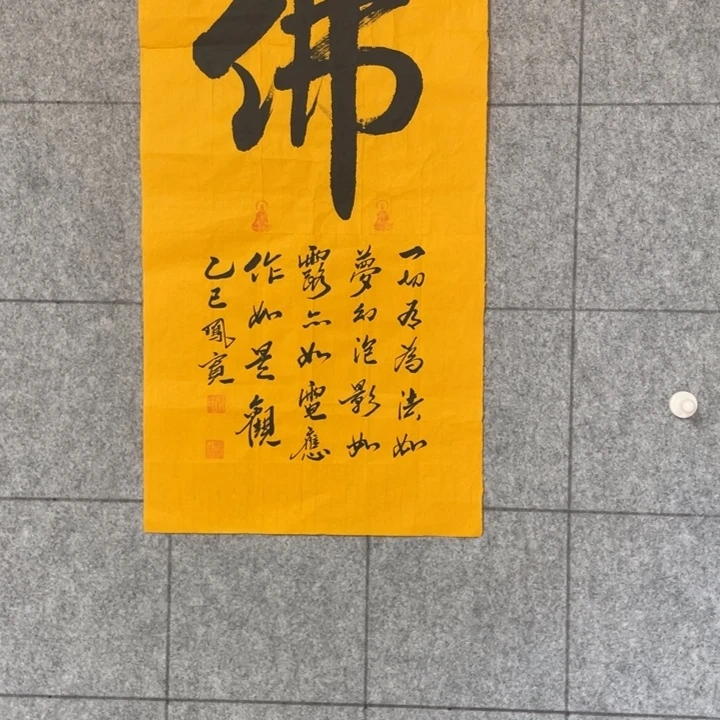 佛
一切有為法如
夢幻泡影如
露亦如電應
作如是觀
乙巳鳳寶